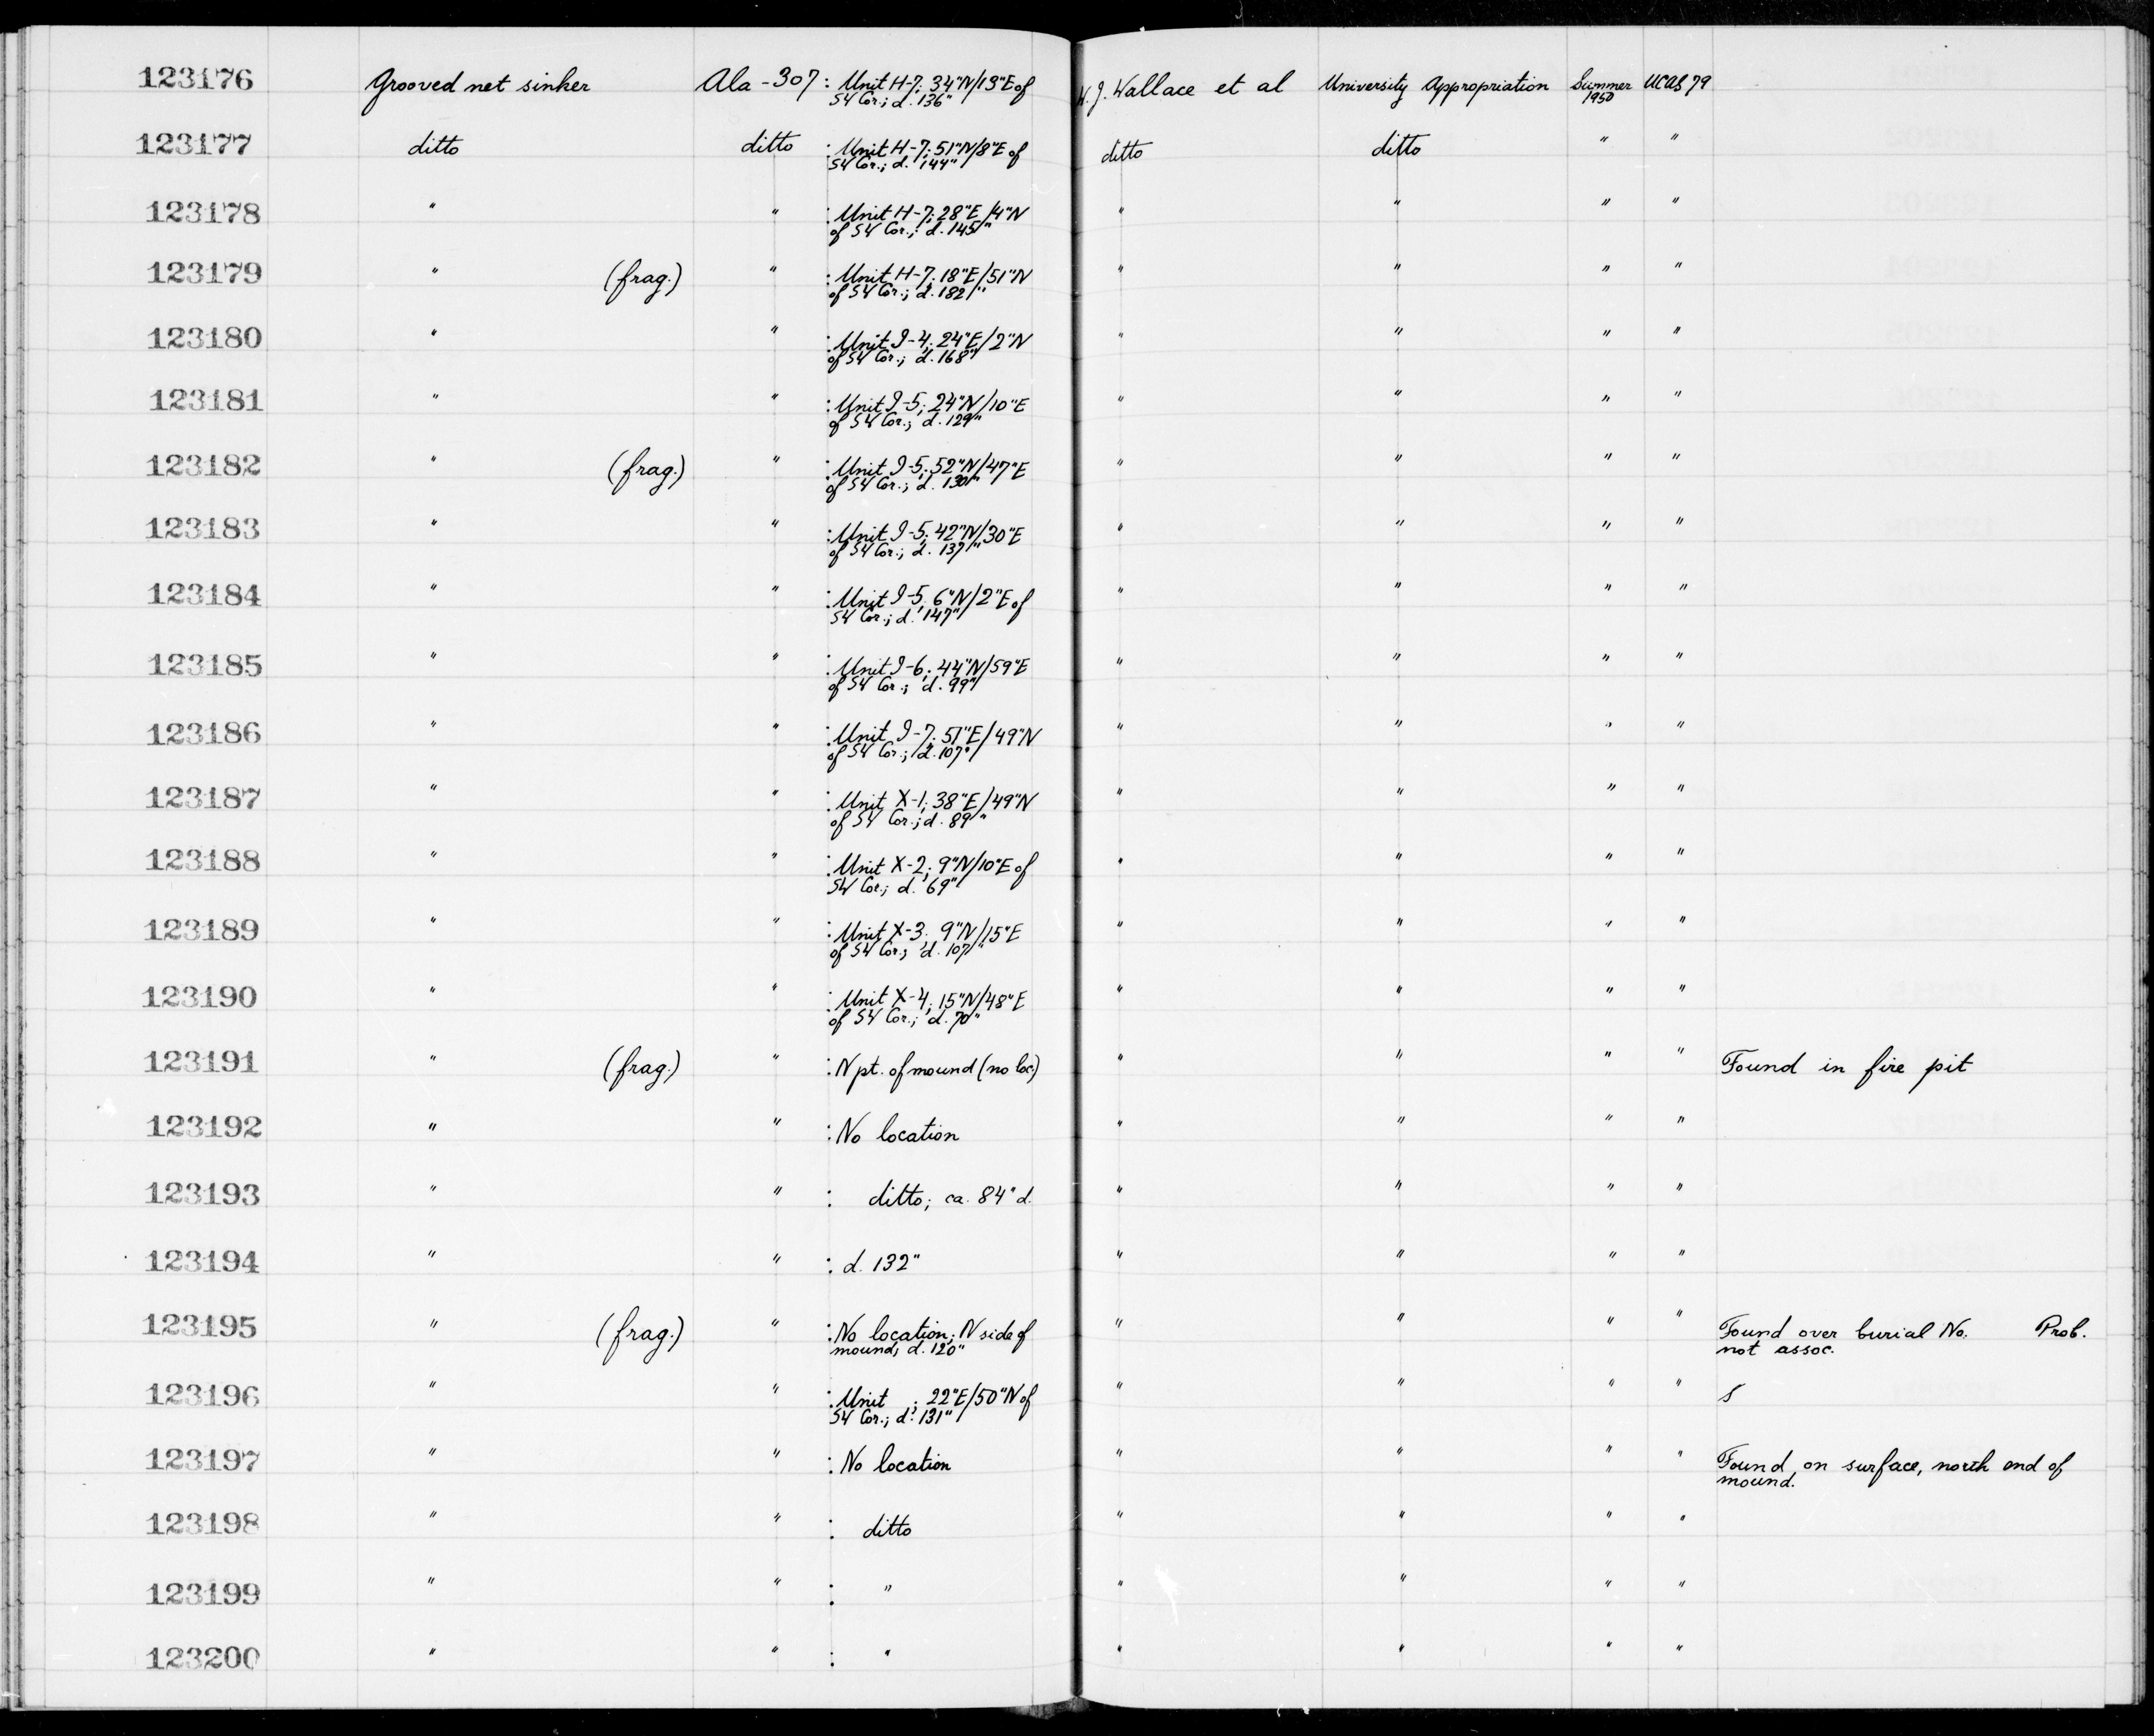 123176 Grooved net sinker Ala-307 : Unit H-7; 34"N/13"E of W.J. Wallace et al University Appropriation Summer UCAS 79
SW Cor.; d. 136" 1950
123177 ditto ditto : Unit H-7; 51"N/8"E of ditto ditto " "
SW Cor.; d. 144"
123178 " " : Unit H-7; 28"E/4"N " " " "
of SW Cor.; d. 145"
123179 " (frag.) " : Unit H-7; 18"E/51"N " " " "
of SW Cor.; d. 182"
123180 " " : Unit I-4; 24"E/2"N " " " "
of SW Cor.; d. 168"
123181 " " : Unit I-5; 24"N/10"E " " " "
of SW Cor.; d. 129"
123182 " (frag.) " : Unit I-5; 52"N/47"E " " " "
of SW Cor.; d. 130"
123183 " " : Unit I-5; 42"N/30"E " " " "
of SW Cor.; d. 137"
123184 " " : Unit I-5; 6"N/2"E of " " " "
SW Cor.; d. 147"
123185 " " : Unit I-6; 44"N/59"E " " " "
of SW Cor.; d. 99"
123186 " " : Unit I-7; 51"E/49"N " " " "
of SW Cor.; d. 107"
123187 " " : Unit X-1; 38"E/49"N " " " "
of SW Cor.; d. 89"
123188 " " : Unit X-2; 9"N/10"E of " " " "
SW Cor.; d. 69"
123189 " " : Unit X-3; 9"N/15"E " " " "
of SW Cor.; d. 107"
123190 " " : Unit X-4; 15"N/48"E " " " "
of SW Cor.; d. 70"
123191 " (frag.) " : N pt. of mound (no loc) " " " " Found in fire pit
123192 " " : No location " " " "
123193 " " : ditto; ca. 84" d. " " " "
123194 " " : d. 132" " " " "
123195 " (frag.) " : No location; N side of " " " " Found over burial No. Prob.
mound; d. 120" not assoc.
123196 " " : Unit ; 22"E/50"N of " " " "
SW Cor.; d. 131"
123197 " " : No location " " " " Found on surface, north end of
mound.
123198 " " : ditto " " " "
123199 " " : " " " " "
123200 " " : " " " " "